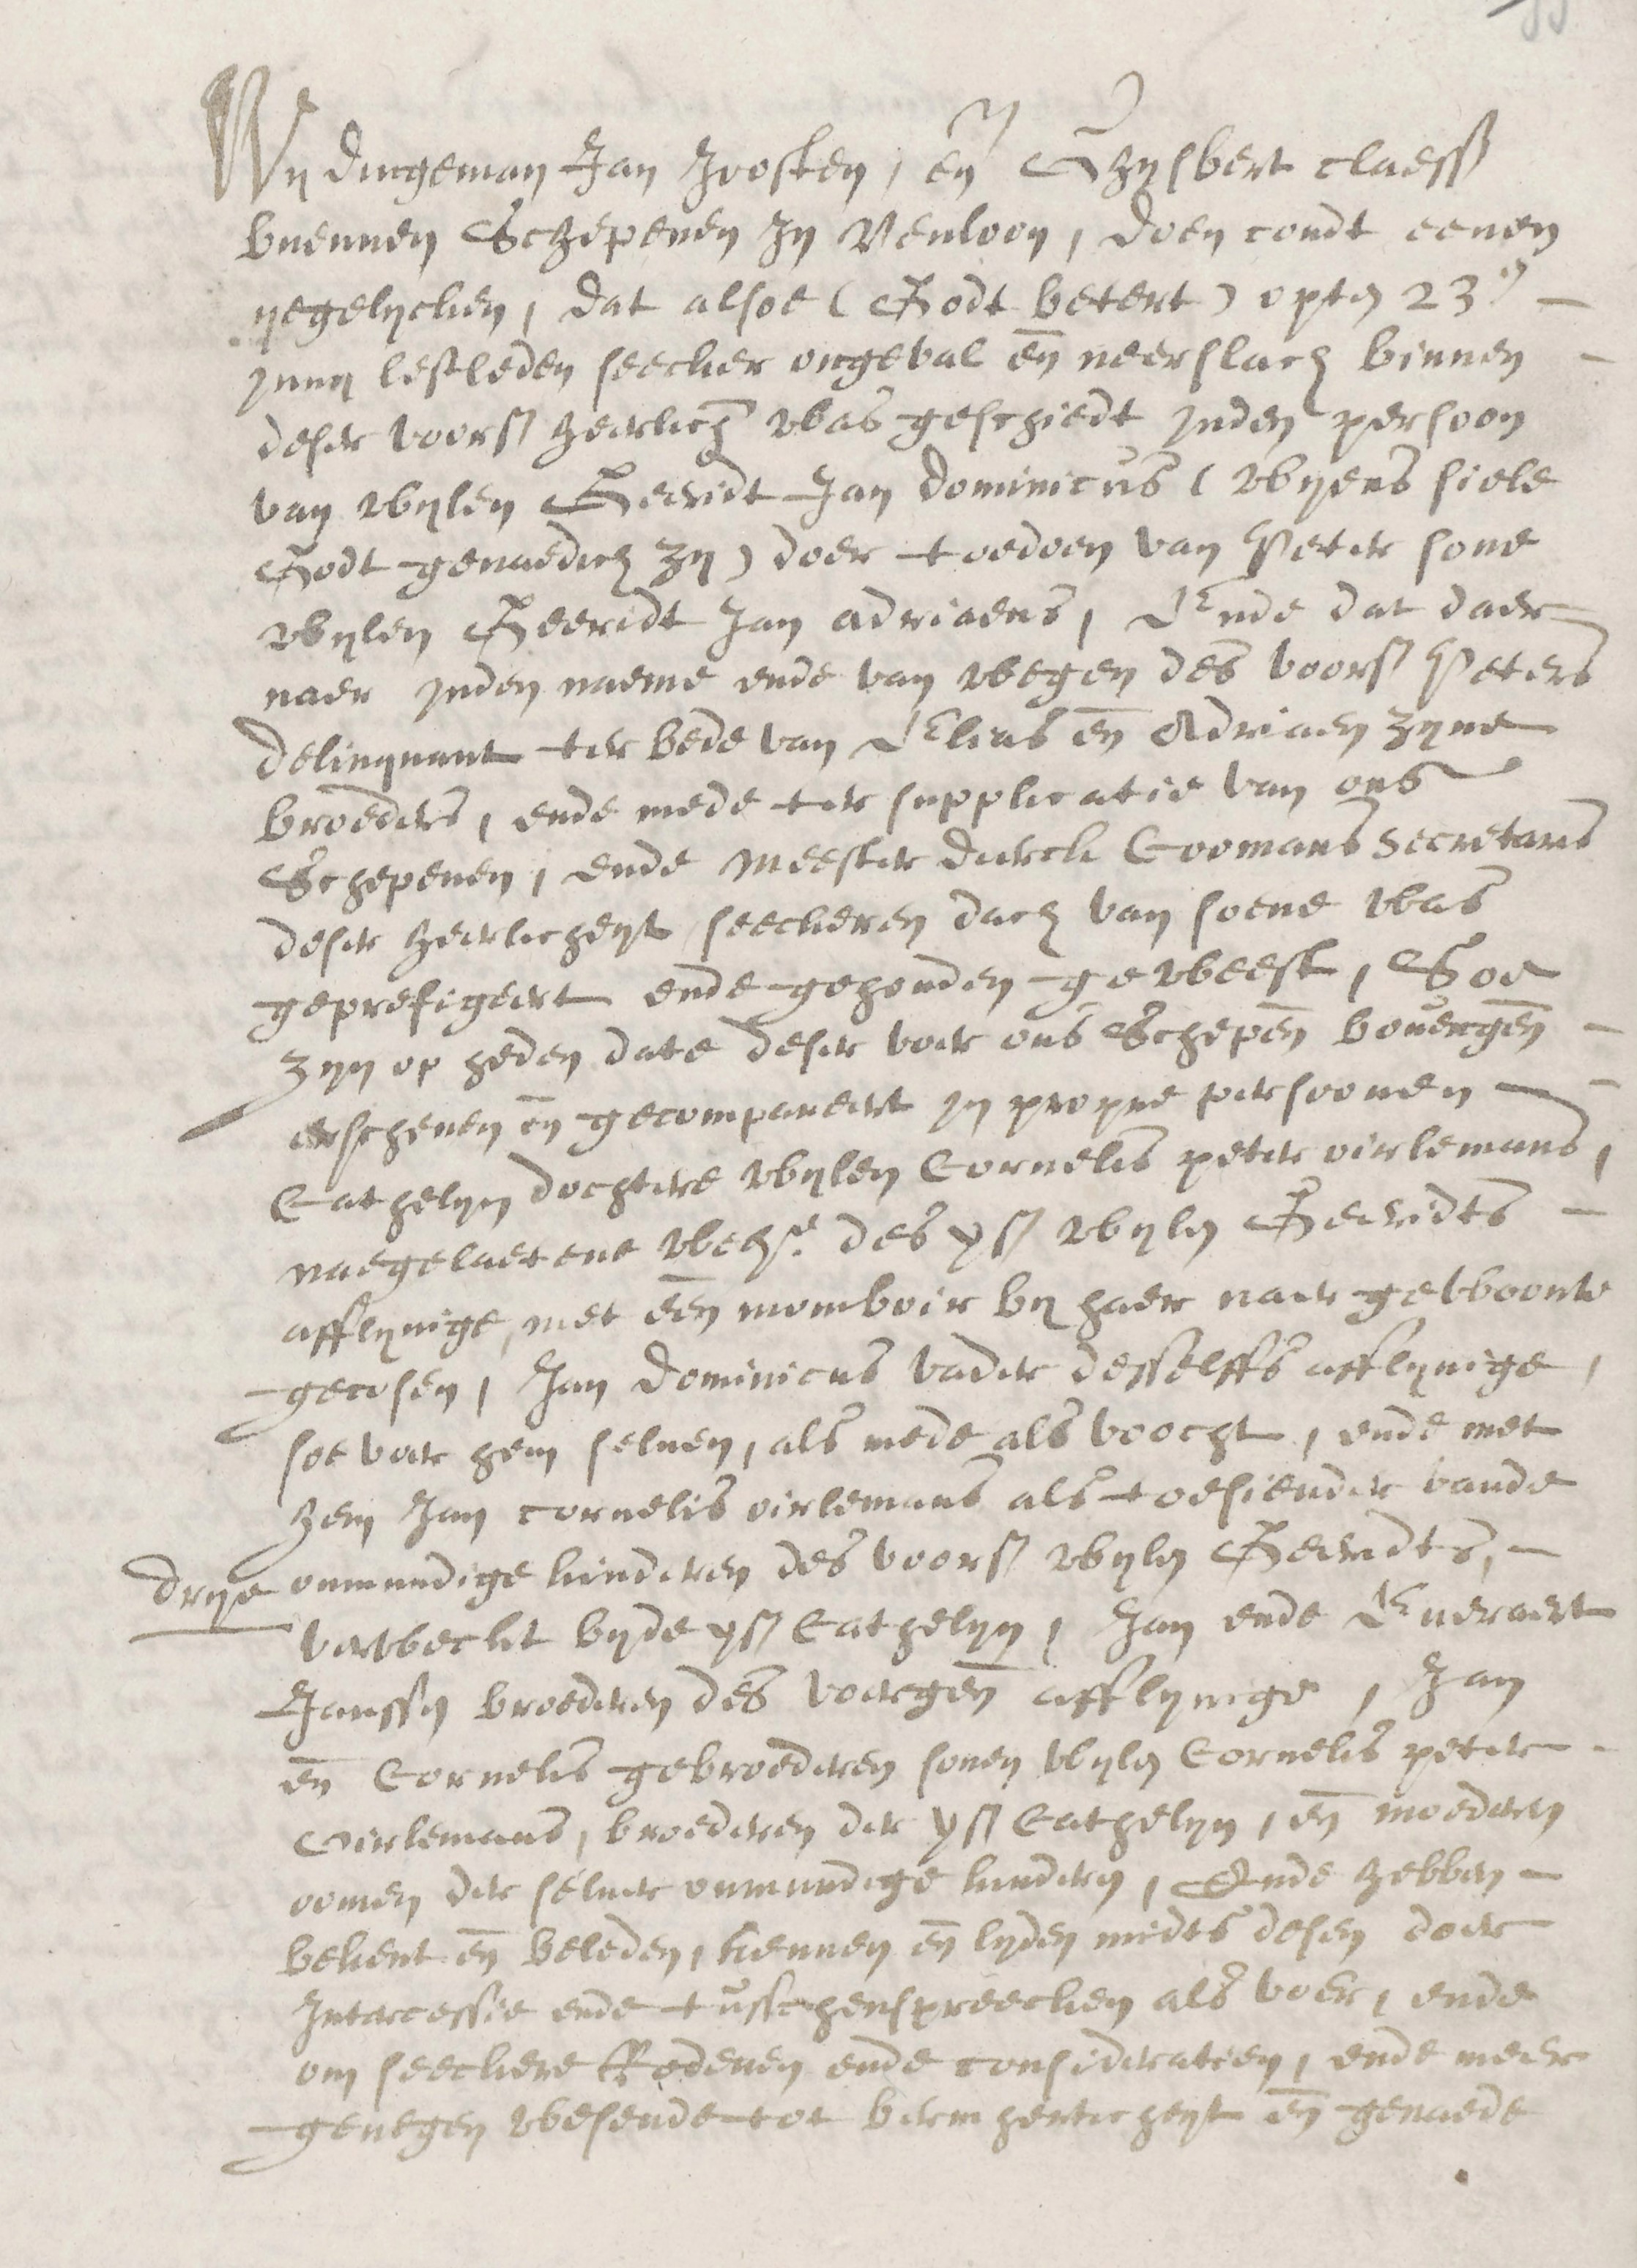 Wy dingeman Jan Joosten, en̄ Ghysbert claess
buennen Schepenen Jn Venloon, doen condt eenen
yegelycken, dat alsoe (Godt betert) opten 23en
Junij lestleden seecker ongeval en̄ neerslach binnen
deser voors heerlich was geschiedt Jnden persoon
van wylen Geeridt Jan dominicus (wyens siele
Godt genaedich zy) doer toedoen van Peter sone
wylen Geeridt Jan adriaens, Ende dat daer
naer Jnden naeme ende van wegen des voors Peters
delinquant ter bede van Elias en̄ Adriaen zyne
broeders, ende mede ter supplicatie van ons
Schepenen, ende Meester dierck Coomans Secretaris
deser heerlicheyt seeckeren dach van soene was
geprefigeert ende gehouden geweest, Soe
zyn op heden date deser voer ons Schepen̄ bouengen̄
erschenen en̄ gecompareert Jn propre persoonen
Cathelyn dochtere wylen Cornelis peter oirlemans,
naegelaetene wede des vs wylen Geeridts
afflyvige, met een̄ momboir by haer naer gewoonte
gecosen, Jan Dominicus vader desselffs afflyvige,
soe voer hem seluen, als mede als voocht, ende met
hem Jan cornelis oirlemans als toesiender vande
drye onmundige kinderen des voors wylen Geeridts,
verweckt byde vs Cathelyn, Jan ende Eueraert
Janssen broederen des voergen̄ afflyvige, Jan
en̄ Cornelis gebroederen sonen wylen Cornelis peter
Oirlemans, broederen der vs Cathelyn, en̄ moederen
oomen der seluer onmundige kinderen, Ende hebben
bekent en̄ beleden, kennen en̄ lyden midts desen doer
Intercessie ende tusschenspreecken als voer, ende
om seeckere Redenen ende consideratien, ende meer
genegen wesende tot bermherticheyt en̄ genaede